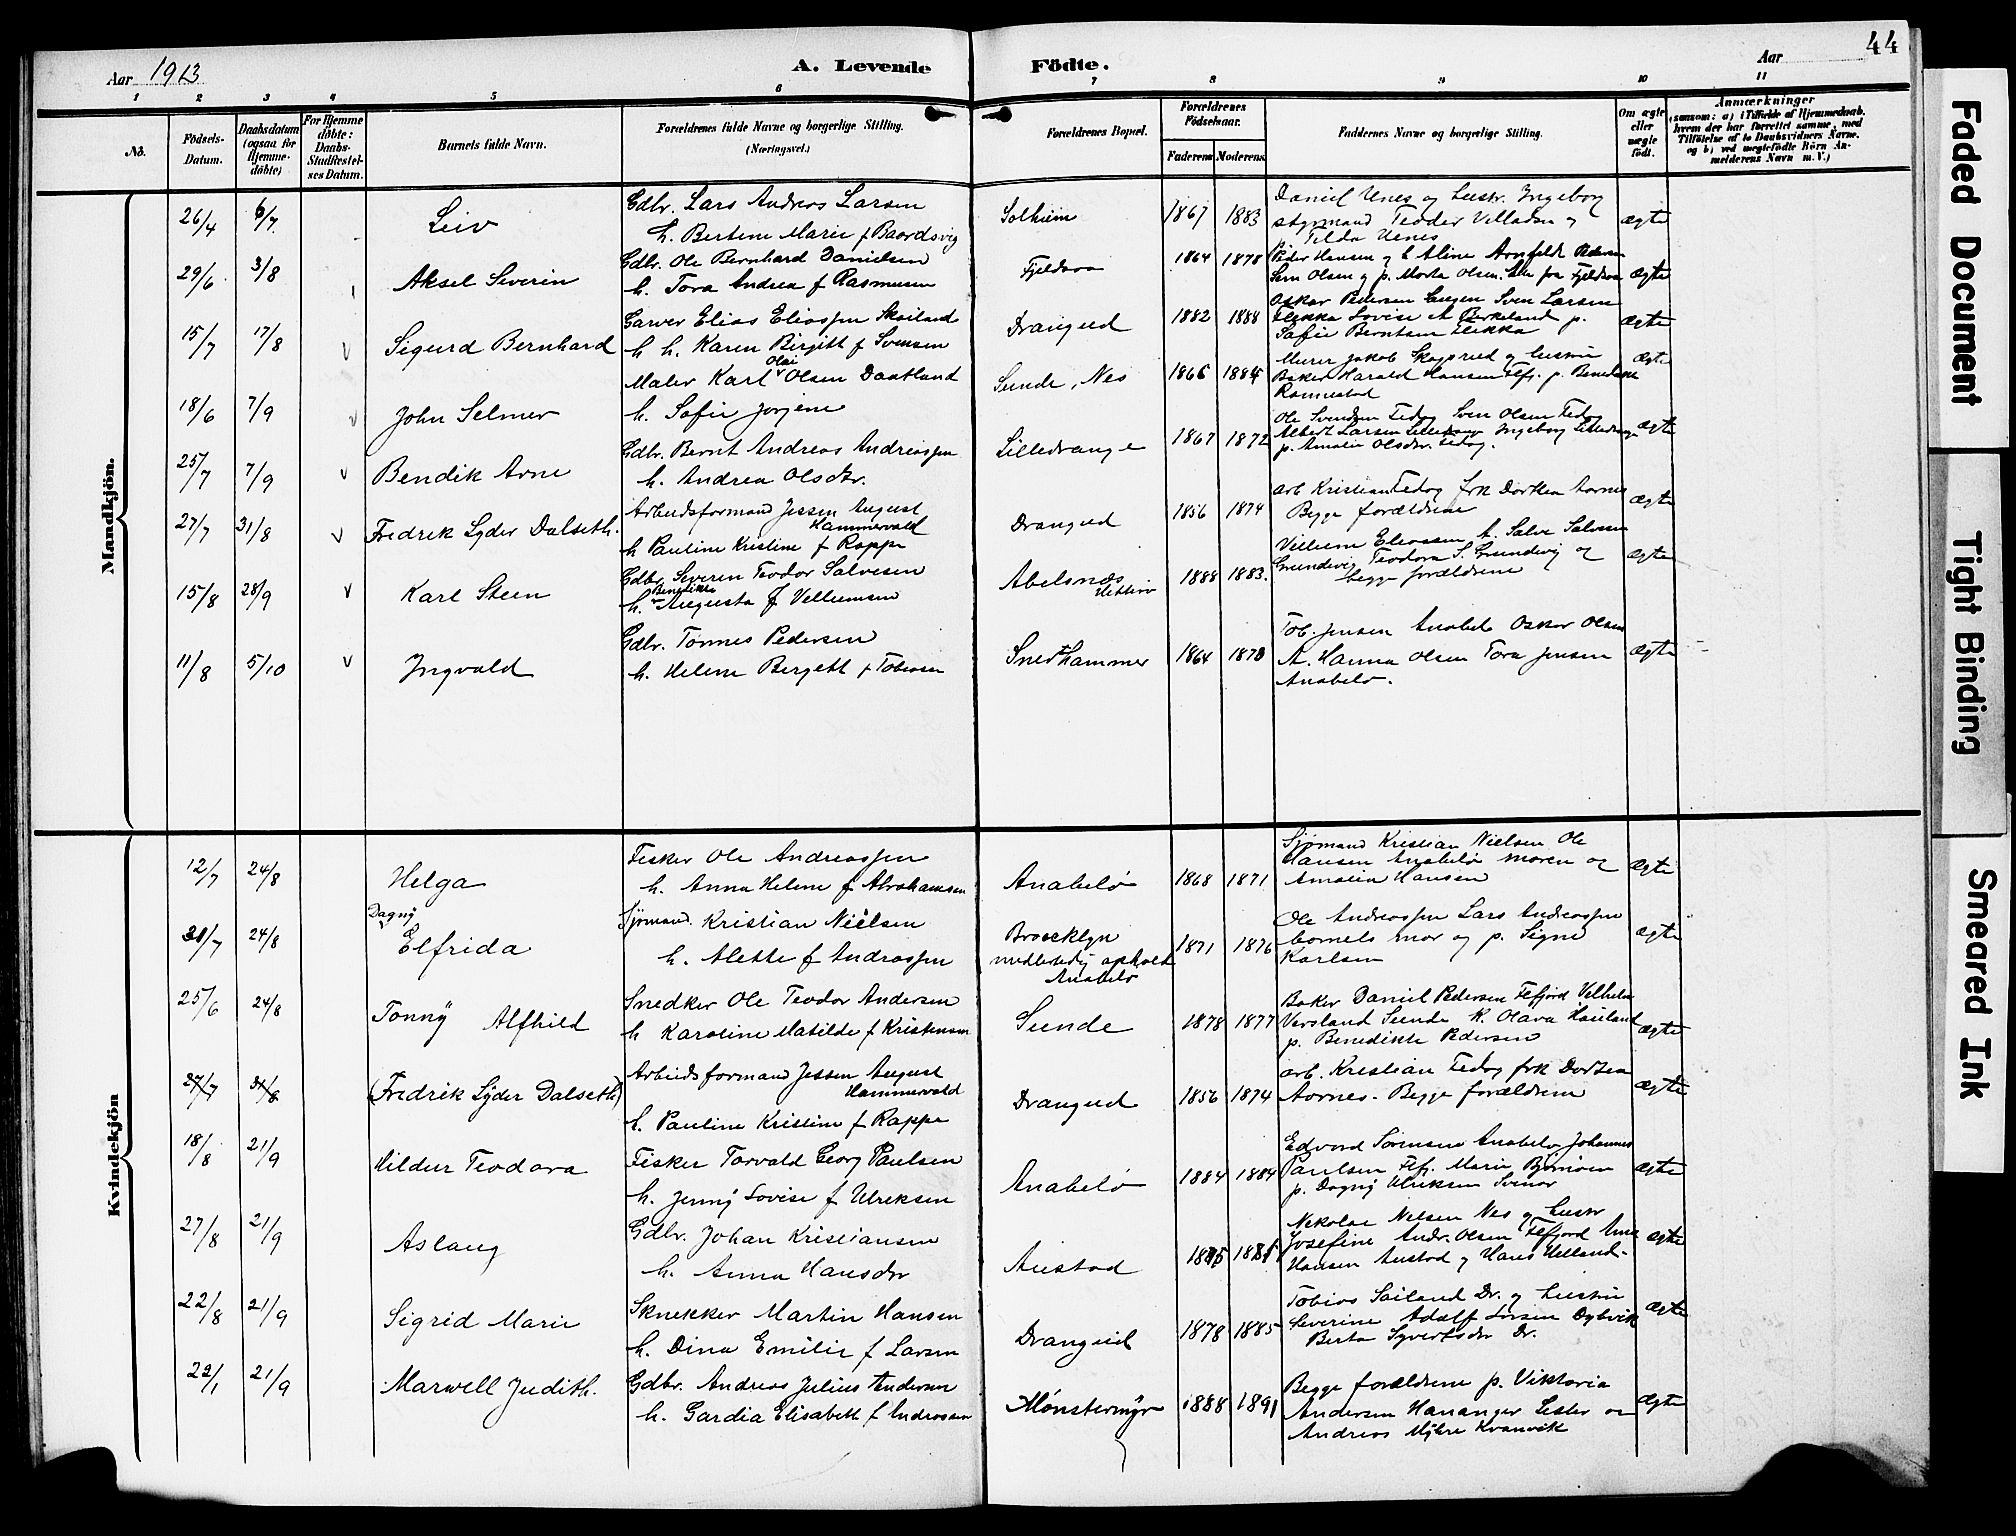 Aar 1913
A. Levende
Födte.
Aar
44
1 2 3 4 5 6 7 8 9 10 11
No.
Födsels-Datum.
Daabsdatum (ogsaa for Hjemme-döbte)
For Hjemme döbte: Daabs-Stadfæstel-ses Datum.
Barnets fulde Navn.
Forældrenes fulde Navne og borgerlige Stilling.
(Næringsvei.)
Forældrenes Bopæl.
Forældrenes Födselsaar.
Faderens Moderens
Faddernes Navne og borgerlige Stilling.
Om ægte eller uægte født.
Anmærkninger
(saasom: a) i Tilfælde af Hjemmedaab, hvem der har forrettet samme, med Tilføielse af to Daabsvidners Navne. og b) ved uægtefödte Börn Anmelderens Navn m. V.)
Mandkjön.
26/4 6/7 Leiv
Gdbr. Lars Andreas Larsen
h. Bertine Marie f Baardsvig
Solheim 1867 1883
Daniel Uenes og hustr. Ingeborg
styrmand Teodor Villadsen og
Tilda Uenes
ægte
29/6 3/8 Aksel Severin
Gdbr. Ole Bernhard Danielsen
h. Tora Andrea f Rasmusen
Fjeldsaa 1864 1878
Peder Hansen g h Aline Arnfeldt Pedersen
Sem Olsen g p. Marta Olsen. alle fra Fjeldsaa
ægte
15/7 17/8 v Sigurd Bernhard
Garver Elias Eliassen Skailand
h h. Karen Birgitt f Svensen
Drangeid 1882 1888
Oskar Pedersen Haugen Sven Larsen
Flikka Lovise A Birkeland p.
Safie Berntsen Flikka
ægte
18/6 7/9 v John Selmer
Maler Karl Olai Olsen Daatland
h. Sofie Jorjene
Sunde, Nes 1866 1884
Murer Jakob Skagsried og hustru
Baker Harald Hansen Flfj. p. Benedikte
Romnestad
ægte
25/7 7/9 v Bendik Arne
Gdbr. Bernt Andreas Andreassen
h. Andrea Olsdtr.
Lilledrange 1867 1872
Ole Svendsen Fedog Sven Olsen Fedog
Albert Larsen Lilledrange Ingeborg Lilledrange
p. Amalie Olsdtr. Fedog.
ægte
27/7 31/8 v Fredrik Lyder Dalseth.
Arbeidsformand Jessen August Hammervold
h Pauline Kristine f Rappe
Drangeid 1856 1874
arb Kristian Fedog frk Dorthea Aarnes
Begge forældrene
ægte
15/8 28/9 v Karl Steen
Gdbr. Severin Teodor Salvesen
h. Benedikte Augusta f Velliemsen
Abelsnæs 1888 1883.
Vilhelm Eliassen A. Salve Salvesen
Grundevig Teodora S. Grundevig og
begge forældrene
ægte
11/8 5/10 v Ingvald
Gdbr. Tønnes Pedersen
h. Helene Bergett f Tobiasen
Snedkhammer 1864 1870
Tob. Jensen Anabelø Oskar Olsen
A. Hanna Olsen Tora Jensen
Anabelø.
ægte
Kvindekjön
12/7 24/8 Helga
Fisker Ole Andreassen
h. Anna Helene f Abrahamsen
Anabelø 1868 1871
Sjømand Kristian Nielsen Ole
Hansen Anabelø moren og
Amalia Hansen
ægte
31/7 24/8 Dagny Elfrida
Sjømand Kristian Nielsen
h. Alette f Andreassen
Broocklyn midlertidig ophold Anabelø 1871 1876
Ole Andreassen Lars Andreassen
barnets mor og p. Signe
Karlsen
ægte
25/6 24/8 Tonny Alfhild
Snedker Ole Teodor Andersen
h Karoline Matilde f Kristensen
Sunde 1878 1877
Baker Daniel Pedersen Flfjord Vilhelm
Versland Sunde K. Olava Haaland
p. Benedikte Pedersen
ægte
27/7 31/8 (Fredrik Lyder Dalseth)
Arbeidsformand Jessen August Hammervold
h. Pauline Kristine f Rappe
Drangeid 1856 1874
arb. Kristian Fedog frk Dorthea
Aarnes. Begge forældrene
ægte
18/8 21/9 Hildur Teodora
Fisker Torvald Georg Paulsen
h. Jenny Lovise f Ulriksen
Anabelø 1884 1884
Edvard Sørensen Anabelø Johannes
Paulsen Flfj. Marie Bjørnøen
p. Dagny Ulriksen Svenør
ægte
27/8 21/9 Aslaug
Gdbr. Johan Kristiansen
h. Anna Hansdtr
Austad 1885 1885
Nikolai Nilsen Nes og hustr
Josefine Andr. Olsen Flfjord Anne
Hansen Austad g Hans Helland.
ægte
22/8 21/9 Sigrid Marie
Snekker Martin Hansen
h. Dina Emilie f Larsen
Drangeid 1878 1885
Tobias Sailand Dr. g hustru
Severine Adolf Larsen Dybvik
Berta Syvertsdtr Dr.
ægte
22/1 21/9 Marwell Judith.
Gdbr. Andreas Julius Andersen
h. Gardia Elisabeth f Andreassen
Mønstermyr 1888 1891
Begge forældrene p. Viktoria
Andersen Hananger Lister og
Andreas Myhre Kvanvik
ægte
Faded Document
Tight Binding
Smeared Ink